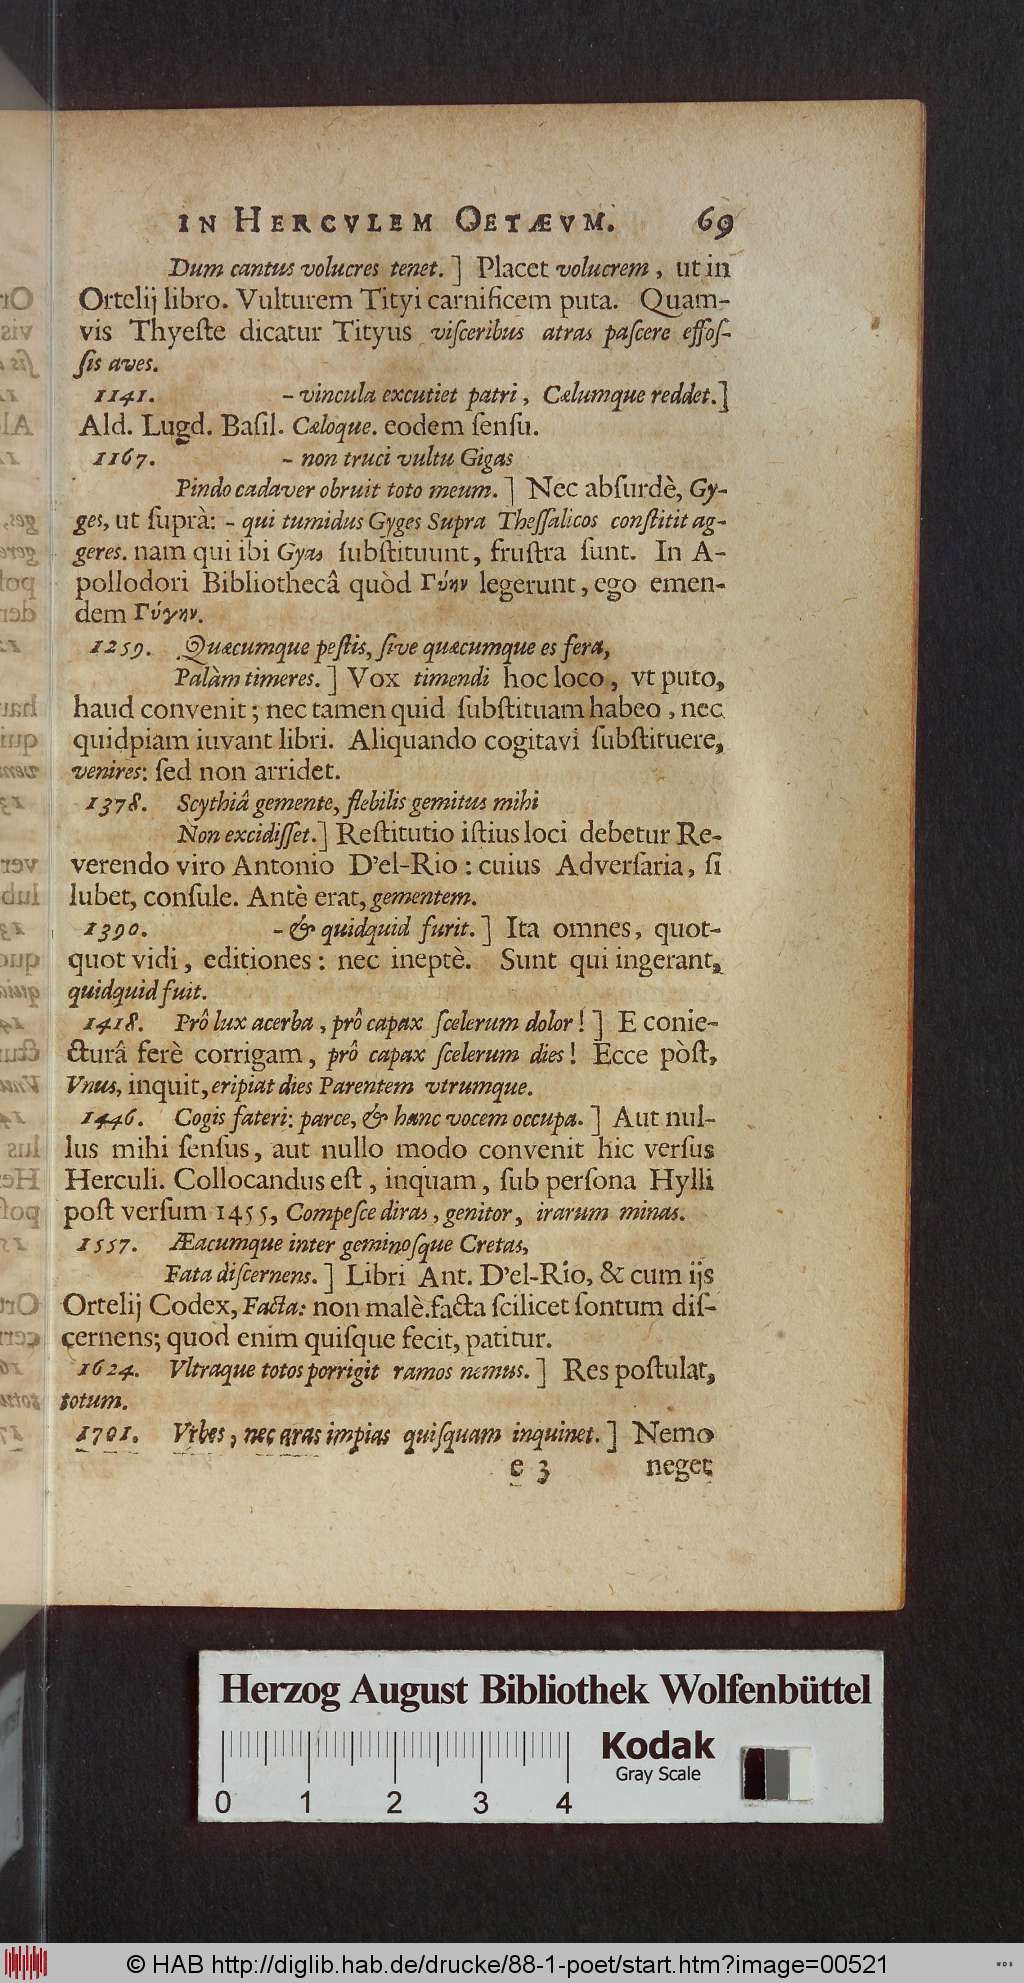 IN HERCVLEM OETÆVM. 69
Dum cantus volucres tenet. ] Placet volucrem, ut in
Ortelij libro. Vulturem Tityi carnificem puta. Quam-
vis Thyeſte dicatur Tityus viſceribus atras paſcere effoſ-
ſis aves.
1141. – vincula excutiet patri, Cælumque reddet.]
Ald. Lugd. Baſil. Cæloque. eodem ſenſu.
1167. – non truci vultu Gigas
Pindo cadaver obruit toto meum. ] Nec abſurdè, Gy-
ges, ut ſuprà: – qui tumidus Gyges Supra Theſſalicos conſtitit ag-
geres. nam qui ibi Gyas ſubſtituunt, fruſtra ſunt. In A-
pollodori Bibliothecâ quòd Γύην legerunt, ego emen-
dem Γύγην.
1259. Quæcumque peſtis, ſive quæcumque es fera,
Palàm timeres. ] Vox timendi hoc loco, vt puto,
haud convenit; nec tamen quid ſubſtituam habeo, nec
quidpiam iuvant libri. Aliquando cogitavi ſubſtituere,
venires: ſed non arridet.
1378. Scythiâ gemente, flebilis gemitus mihi
Non excidiſſet.] Reſtitutio iſtius loci debetur Re-
verendo viro Antonio D'el-Rio: cuius Adverſaria, ſi
lubet, conſule. Antè erat, gementem.
1390. – & quidquid furit. ] Ita omnes, quot-
quot vidi, editiones: nec ineptè. Sunt qui ingerant,
quidquid fuit.
1418. Prô lux acerba, prô capax ſcelerum dolor! ] E conie-
cturâ ferè corrigam, prô capax ſcelerum dies! Ecce pòſt,
Vnus, inquit, eripiat dies Parentem vtrumque.
1446. Cogis fateri: parce, & hanc vocem occupa. ] Aut nul-
lus mihi ſenſus, aut nullo modo convenit hic verſus
Herculi. Collocandus eſt, inquam, ſub perſona Hylli
poſt verſum 1455, Compeſce diras, genitor, irarum minas.
1557. Æacumque inter geminoſque Cretas,
Fata diſcernens. ] Libri Ant. D'el-Rîo, & cum ijs
Ortelij Codex, Facta: non malè.facta ſcilicet ſontum diſ-
cernens; quod enim quiſque fecit, patitur.
1624. Vltraque totos porrigit ramos nemus. ] Res poſtulat,
totum.
1701. Vrbes, nec aras impias quiſquam inquinet. ] Nemo
e 3 neget
Herzog August Bibliothek Wolfenbüttel
Kodak
Gray Scale
0 1 2 3 4
© HAB http://diglib.hab.de/drucke/88-1-poet/start.htm?image=00521